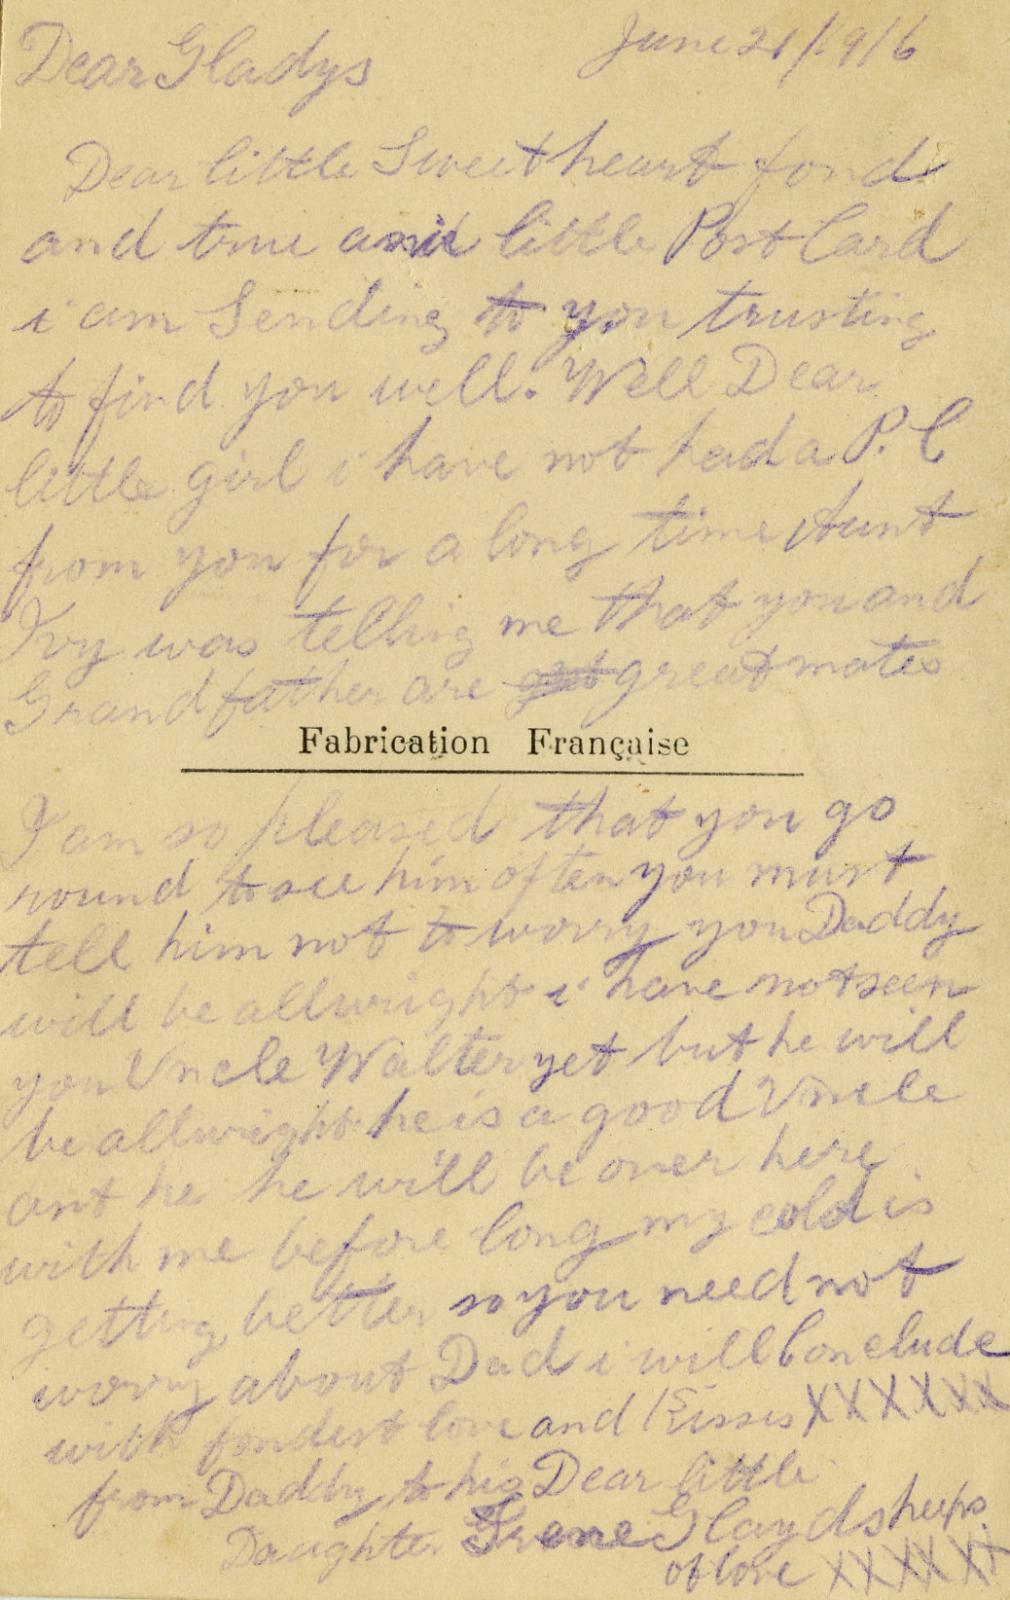 Dear Gladys June 21/1916
Dear little Sweet heart fond
and true and little Post Card
i am Sending to you trusting
to find you well. Well Dear
little girl i have not had a P.C
from you for a long time Aunt
Ivy was telling me that you and
Grandfather are great mates
Fabrication Française
I am so pleased that you go
round to see him often you must
tell him not to worry you Daddy
will be allwright i have not seen
you Uncle Walter yet but he will
be allwright he is a good Uncle
ant he he will be over here
with me before long my cold is
getting better so you need not
worry about Dad i will Conclude
with fondest love and Kisses XXXXXX
from Daddy to his Dear little
Daughter Irene Glayds heeps
of love XXXXXX